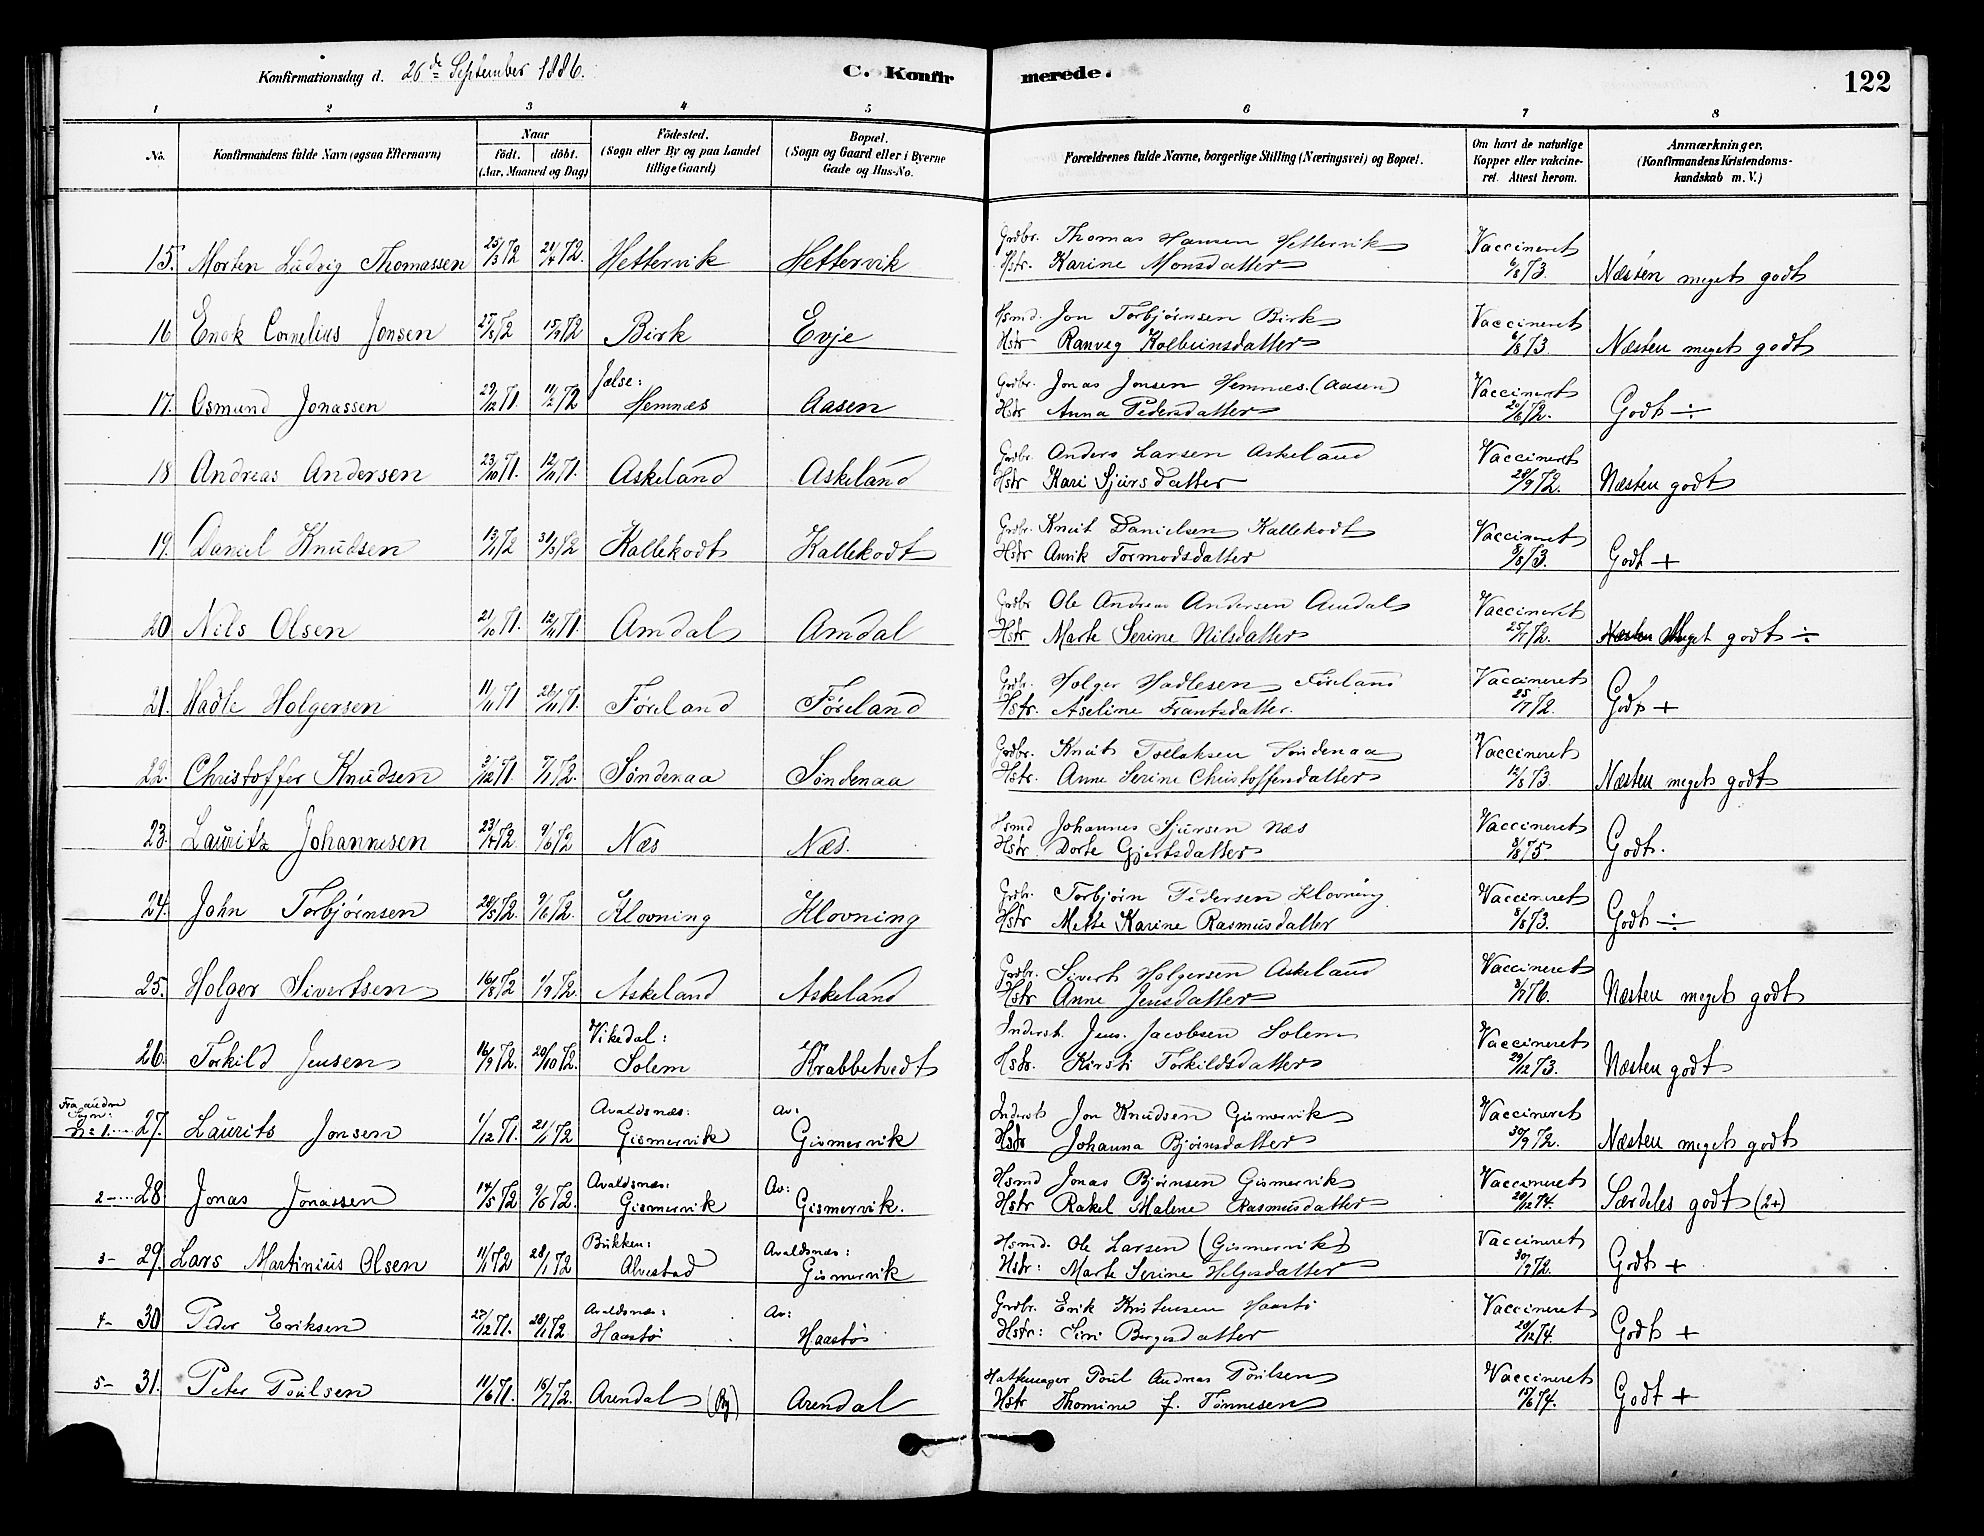 Konfirmationsdag d. 26de September 1886.
C. Konfirmerede.
122
1 2 3 4 5 6 7 8
No.
Konfirmandens fulde Navn (ogsaa Efternavn)
Naar
födt. döbt.
(Aar, Maaned og Dag)
Födested.
(Sogn eller By og paa Landet
tillige Gaard)
Bopæl.
(Sogn og Gaard eller i Byerne
Gade og Hus-No.
Forældrenes fulde Navne, borgerlige Stilling (Næringsvei) og Bopæl.
Om havt de naturlige
Kopper eller vakcine-
ret. Attest herom.
Anmærkninger.
(Konfirmandens Kristendoms-
kundskab m. V.)
Grdbr. Thomas Hansen Hettervik Vaccineret
15. Morten Ludvig Thomassen 25/3 72 21/4 72. Hettervik Hettervik Hstr. Karine Monsdatter 6/8 73. Næsten meget godt
Hsmd. Jon Torbjørnsen Birk Vaccineret
16 Enok Cornelius Jonsen 72 72 Birk Evje Hstr Ranveg Kolbeinsdatter 6/8 73. Næsten meget godt
Jelse: Grdbr. Jonas Jonsen Hemnæs. (Aasen) Vaccineret
17. Osmund Jonassen 29/12 71. 11/2 72 Hemnæs Aasen Hstr Anna Pedersdatter 20/6 72. Godt ÷
Grdbr. Anders Larsen Askeland Vaccineret
18 Andreas Andersen 23/10 71. 12/11 71. Askeland Askeland Hstr Kari Sjursdatter 28/9 72. Næsten godt
Grdbr. Knut Danielsen Kallekodt Vaccineret
19. Daniel Knudsen 13/1 72 31/3 72 Kallekodt Kallekodt Hstr Anvik Tormodsdatter 8/8 73. Godt +
Grdbr Ole Andreas Andersen Amdal Vaccineret
20 Nils Olsen 21/10 71. 12/11 71. Amdal Amdal Hstr Marte Serine Nilsdatter 25/7 72. Næsten Meget godt ÷
Grdbr. Holger Hadlesen Føreland Vaccineret
21. Hadle Holgersen 11/11 71 26/11 71. Føreland Føreland Hstr. Aseline Frantsdatter. 25/7 72. Godt +
Grdbr. Knut Tollaksen Søndenaa Vaccineret
22. Christoffer Knudsen 3/12 71. 7/1 72. Søndenaa Søndenaa Hstr. Anne Serine Christoffersdatter 12/8 73. Næsten meget godt
Hsmd Johannes Sjursen Næs Vaccineret
23. Laurits Johannesen 23/4 72. 9/6 72 Næs Næs. Hstr. Dorte Gjertsdatter 8/8 75. Godt.
Grdbr. Torbjørn Pedersen Klovning Vaccineret
24. John Torbjørnsen 20/5 72. 9/6 72. Klovning Klovning Hstr Mette Karine Rasmusdatter 8/8 73. Godt ÷
Grdbr. Sivert Holgersen Askeland Vaccineret
25. Holger Sivertsen 16/8 72 1/9 72. Askeland Askeland Hstr Anne Jensdatter 3/7 76. Næsten meget godt
Vikedal: Inderst. Jens Jacobsen Solem Vaccineret
26. Torkild Jensen 16/9 72. 20/10 72. Solem Krabbetvedt Hstr. Kirsti Torkildsdatter 29/12 73. Næsten godt
Fra andre
Sogn: Avaldsnæs: Av: Inderst Jon Knudsen Gismervik Vaccineret
No 1. 27. Laurits Jonsen 1/12 71. 21/1 72 Gismervik Gismervik Hstr Johanna Bjørnsdatter 30/9 72. Næsten meget godt
Avaldsnæs: Av: Hsmd Jonas Bjørnsen Gismervik Vaccineret
2 28 Jonas Jonassen 14/5 72 9/6 72. Gismervik Gismervik. Hstr Rakel Malene Rasmusdatter 20/12 74. Særdeles godt (2+)
Bukken: Avaldsnæs: Hsmd. Ole Larsen (Gismervik) Vaccineret
3 29. Lars Martinius Olsen 11/1 72 28/1 72 Alvestad Gismervik Hstr: Marte Serine Helgesdatter 30/9 72. Godt +
Avaldsnæs: Av: Grdbr. Erik Kristensen Haastø Vaccineret
4 30 Peder Eriksen 27/12 71. 28/1 72 Haastø Haastø Hstr: Siri Bergesdatter 20/12 74. Godt +
Hattemager Poul Andreas Poulsen Vaccineret
5 31. Peter Poulsen 11/6 71. 15/7 72. Arendal (By) Arendal Hstr Thomine J. Tønnesen 15/6 74. Godt +